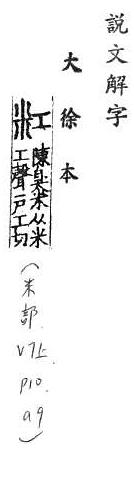 說文解字
大徐本
粠
陳臭米从米
工聲戶工切
(米部
V7上
p10
a9)